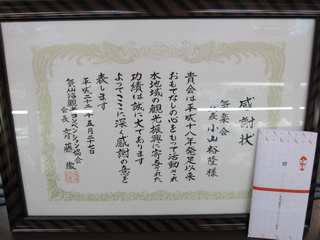 感謝状
無楽会
代表 小山裕隆様
貴会は平成十八年発足以来
おもてなしの心をもって活動され
本地域の観光振興に寄与された
功績は誠に大であります
よってここに深く感謝の意を
表します
平成二十三年五月二十七日
気仙沼観光コンベンション協会
会長